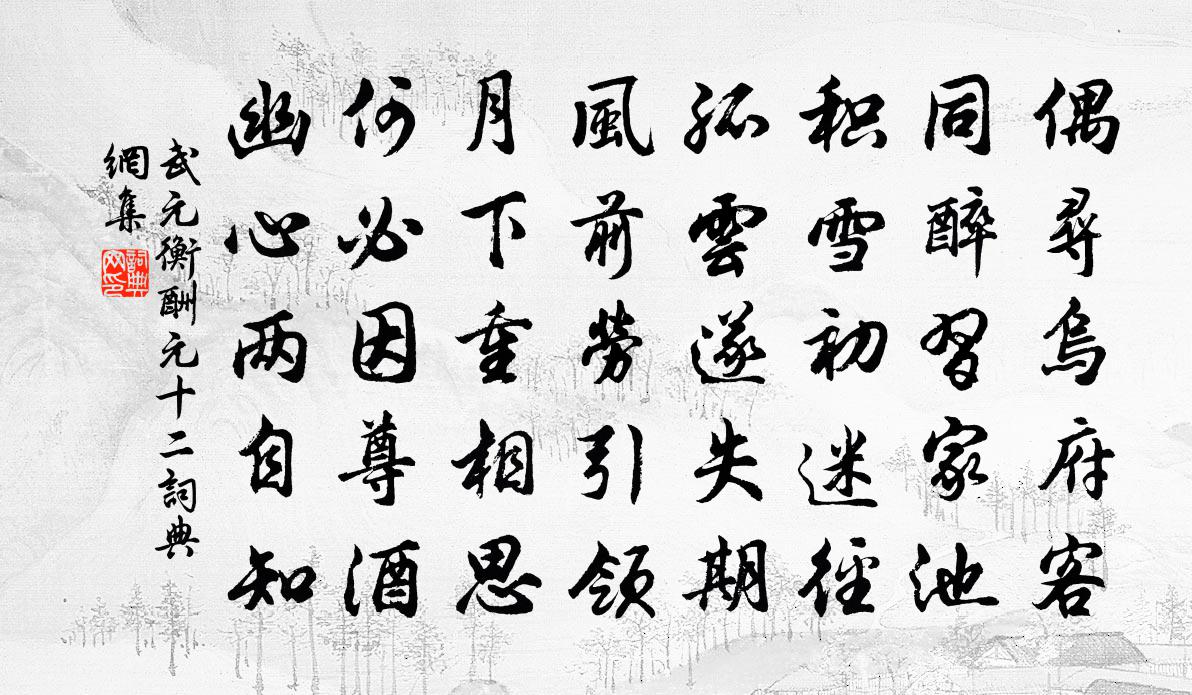 偶尋烏府客
同醉習家池
积雪初迷徑
孤雲遂失期
風前勞引领
月下重相思
何必因尊酒
幽心两自知
武元衡酬元十二詞典
網集
詞典
网印